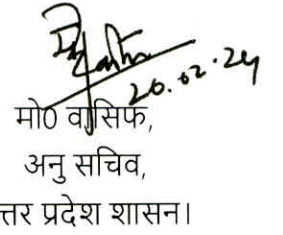 20.02.24
मो0 वासिफ,
अनु सचिव,
त्तर प्रदेश शासन।